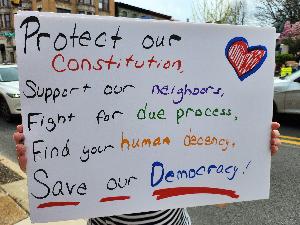 Protect our
Constitution,
Support our neighbors,
Fight for due process,
Find your human decency,
Save our Democracy!